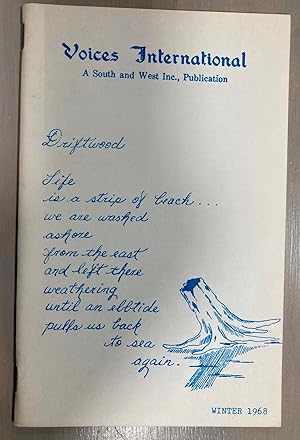 Voices International
A South and West Inc., Publication
Driftwood
Life
is a strip of beach . . .
we are washed
ashore
from the east
and left there
weathering
until an ebbtide
pulls us back
to sea
again.
WINTER 1968